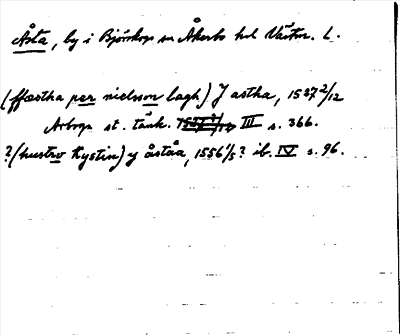 Åsta, by i Björskogs sn Åkerbo hd Västm. L.
(ffästha per nielsson lagh) J astha, 1527 2/12
Arboga st. tänk. III s. 366.
? (hustro Kystin) y åståa, 1556 1/5? ib. IV s. 96.